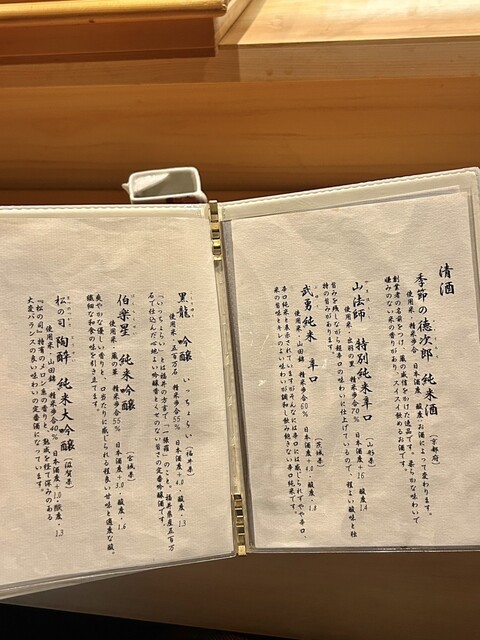 清酒
季節の徳次郎 純米酒 (京都府)
使用米・精米歩合・日本酒度・酸度・お酒によって変わります。
創業者の名前をつけ、蔵の威信をかけた逸品です。柔らかな味わいで
嫌みのない米の香りがあり、スイスイ飲めるお酒です。
山法師 特別純米辛口 (山形県)
使用米・出羽の里 精米歩合70% 日本酒度+16 酸度1.4
旨みをながら超辛口の味わいに仕上げているので、程よい酸味と独
特の旨みがあります。
武勇 純米 辛口 (茨城県)
使用米・山田錦 精米歩合60% 日本酒度+4.0 酸度1.8
辛口純米と表示されていますがそんなには辛口に感じられずやや辛口、
米の旨味とキレのよい味わいが調和した飲み飽きない辛口純米です。
黒龍 吟醸 いっちょらい (福井県)
使用米・五百万石 精米歩合55% 日本酒度+ 酸度1.3
「いっちょらい」とは福井の方言で「一張羅」のこと。福井県産五百万
石で仕込んだ心地よい吟醸香とくせのない旨さの定番吟醸酒です。
伯楽星 純米吟醸 (宮城県)
使用米・蔵の華 精米歩合55% 日本酒度+3.0 酸度1.6
爽やかな優しい香りと、口当たりに感じられる程良い甘味と適度な酸。
繊細な和食の味を引き立てます。
松の司 陶酔 純米大吟醸 (滋賀県)
使用米・山田錦 精米歩合40% 日本酒度+1.0 酸度1.3
『松の司』特有のメロン風の香りと、熟成を経て深みのある
大変バランスの良い味わいの定番酒になっています。